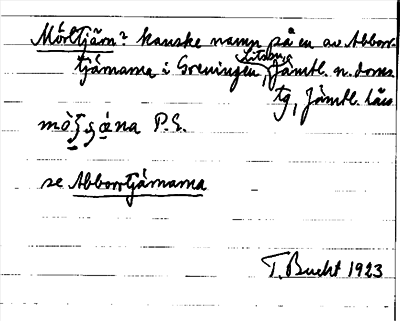 Mörltjärn? Kanske namn på en av Abborr-
tjärnarna i Greningen, Jämtl. n. doms.
tg, Jämtl. län
P. E.
se Abborrtjärnarna
T. Bucht 1923